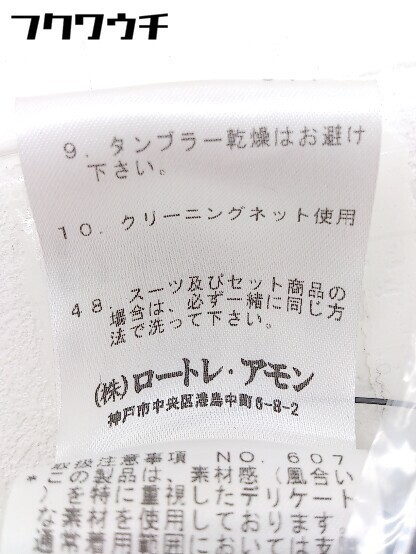 フクワウチ
9. タンブラー乾燥はお避け
下さい。
10. クリーニングネット使用
48. スーツ及びセット商品の
場合は、必ず一緒に同じ方
法で洗って下さい。
(株)ロートレ・アモン
神戸市中央区港島中町6-8-2
取扱注意事項 NO. 607
*この製品は、素材感(風合い
)を特に重視したデリケート
な素材を使用しております
通常着用範囲においては支